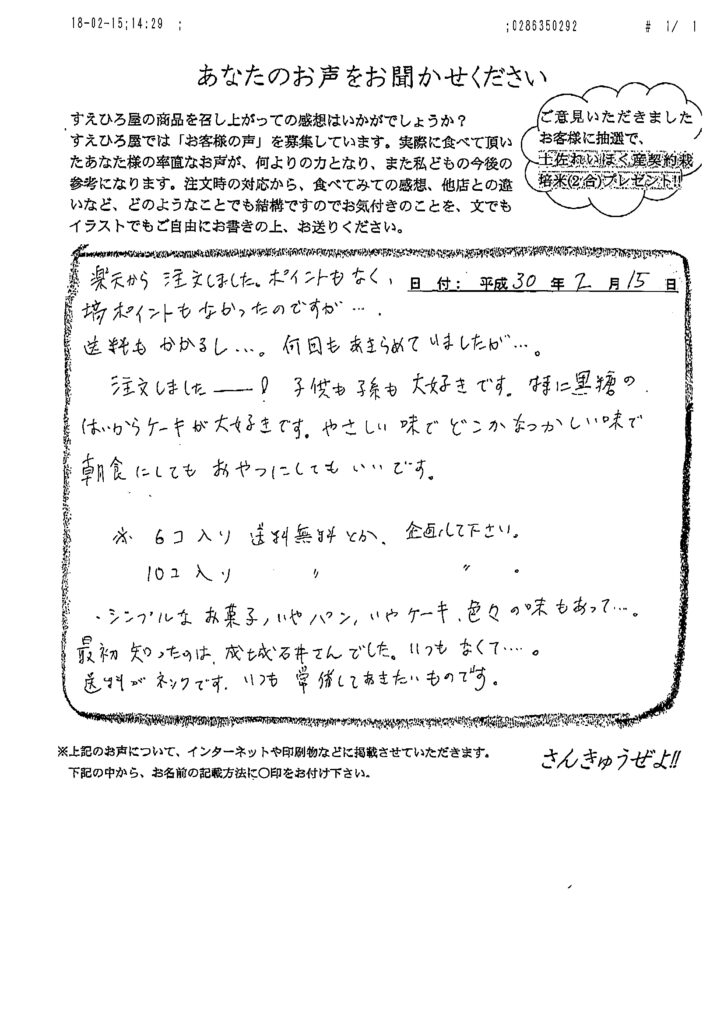 18-02-15;14:29 ; ;0286350292 # 1/ 1
あなたのお声をお聞かせください
すえひろ屋の商品を召し上がっての感想はいかがでしょうか？
すえひろ屋では「お客様の声」を募集しています。実際に食べて頂い
たあなた様の率直なお声が、何よりの力となり、また私どもの今後の
参考になります。注文時の対応から、食べてみての感想、他店との違
いなど、どのようなことでも結構ですのでお気付きのことを、文でも
イラストでもご自由にお書きの上、お送りください。
ご意見いただきました
お客様に抽選で、
土佐れいほく産契約栽
培米(2合)プレゼント!!
日 付：平成30年2月15日
楽天から注文しました。ポイントもなく、
ポイントもなかったのですが…。
送料もかかるし…。何回もあきらめていましたが…。
注文しました――！子供も孫も大好きです。特に黒糖の
はいからケーキが大好きです。やさしい味でどこかなつかしい味で
朝食にしてもおやつにしてもいいです。
※ 6コ入り 送料無料とか、企画して下さい。
10コ入り 〃 〃 。
・シンプルなお菓子、いやパン、いやケーキ、色々の味もあって…。
最初知ったのは、成城石井さんでした。いつもなくて…。
送料がネックです。いつも常備しておきたいものです。
※上記のお声について、インターネットや印刷物などに掲載させていただきます。
下記の中から、お名前の記載方法に○印をお付け下さい。
さんきゅうぜよ!!